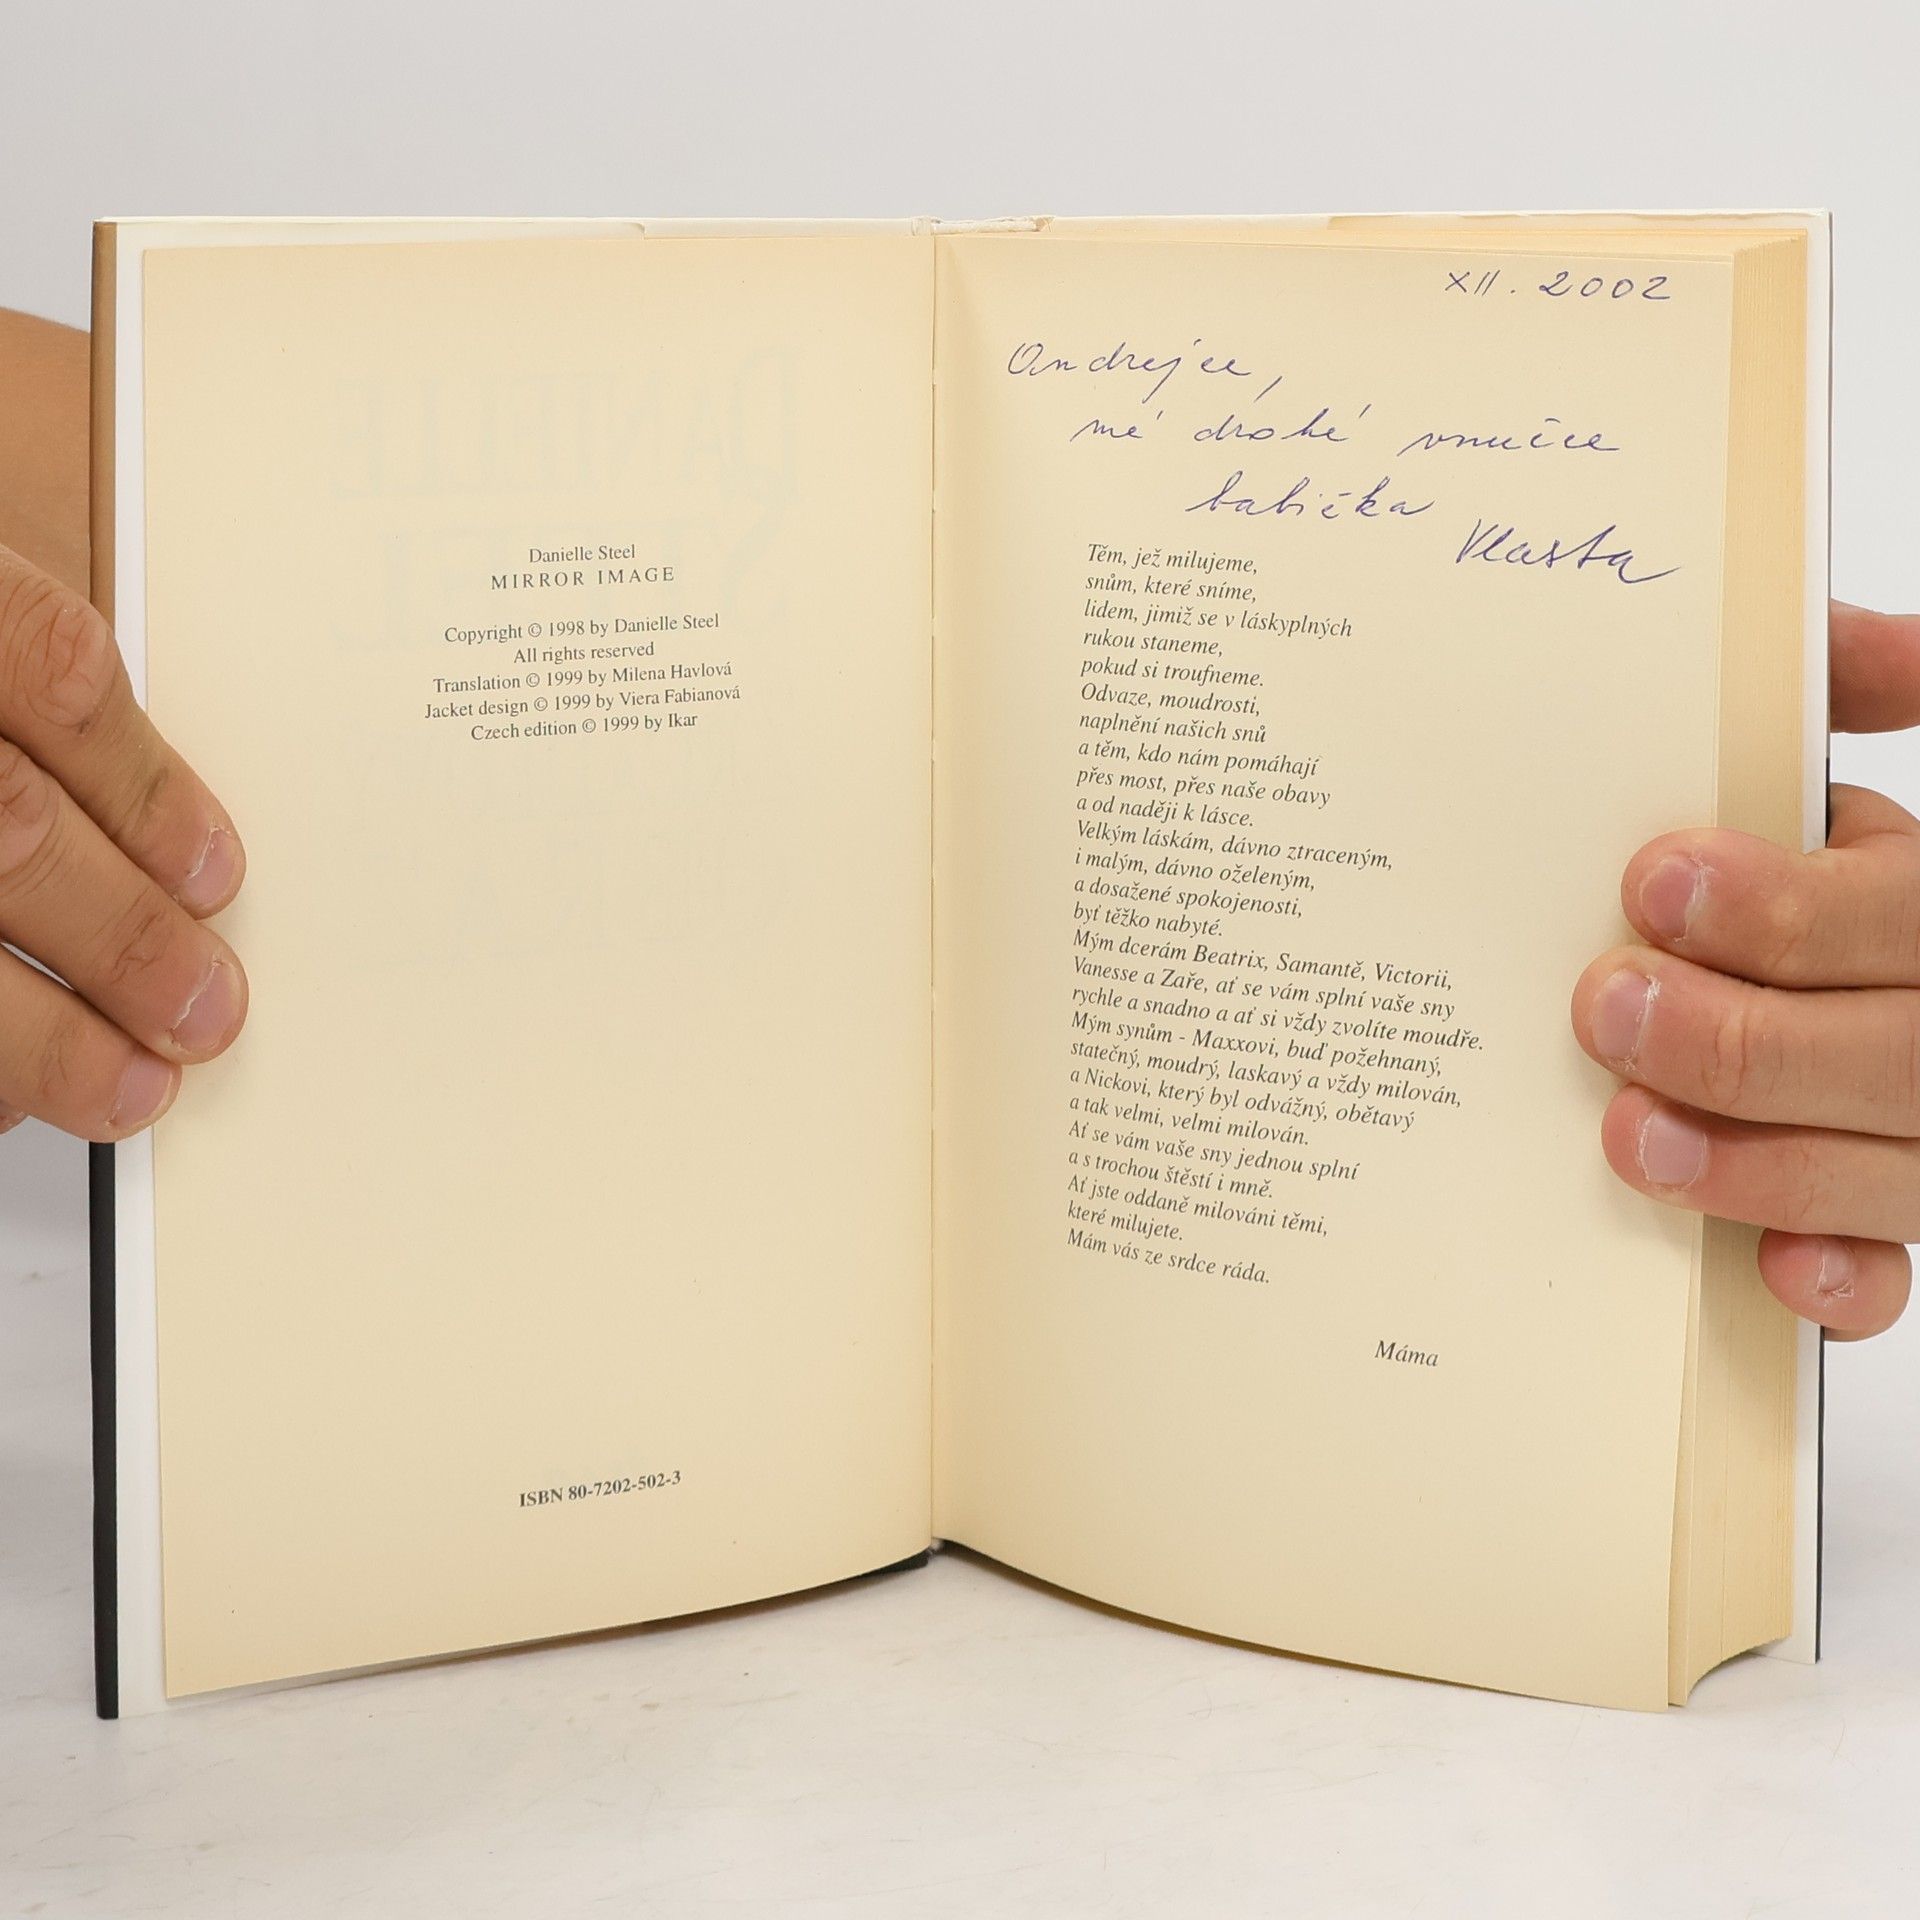 Danielle Steel
MIRROR IMAGE
Copyright © 1998 by Danielle Steel
All rights reserved
Translation © 1999 by Milena Havlová
Jacket design © 1999 by Viera Fabianová
Czech edition © 1999 by Ikar
ISBN 80-7202-502-3
XII. 2002
Ondrejce,
mé drahé vnučce
babička
Vlasta
Těm, jež milujeme,
snům, které sníme,
lidem, jimiž se v láskyplných
rukou staneme,
pokud si troufneme.
Odvaze, moudrosti,
naplnění našich snů
a těm, kdo nám pomáhají
přes most, přes naše obavy
a od naději k lásce.
Velkým láskám, dávno ztraceným,
i malým, dávno oželeným,
a dosažené spokojenosti,
byť těžko nabyté.
Mým dcerám Beatrix, Samantě, Victorii,
Vanesse a Zaře, ať se vám splní vaše sny
rychle a snadno a ať si vždy zvolíte moudře.
Mým synům - Maxxovi, buď požehnaný,
statečný, moudrý, laskavý a vždy milován,
a Nickovi, který byl odvážný, obětavý
a tak velmi, velmi milován.
Ať se vám vaše sny jednou splní
a s trochou štěstí i mně.
Ať jste oddaně milováni těmi,
které milujete.
Mám vás ze srdce ráda.
Máma